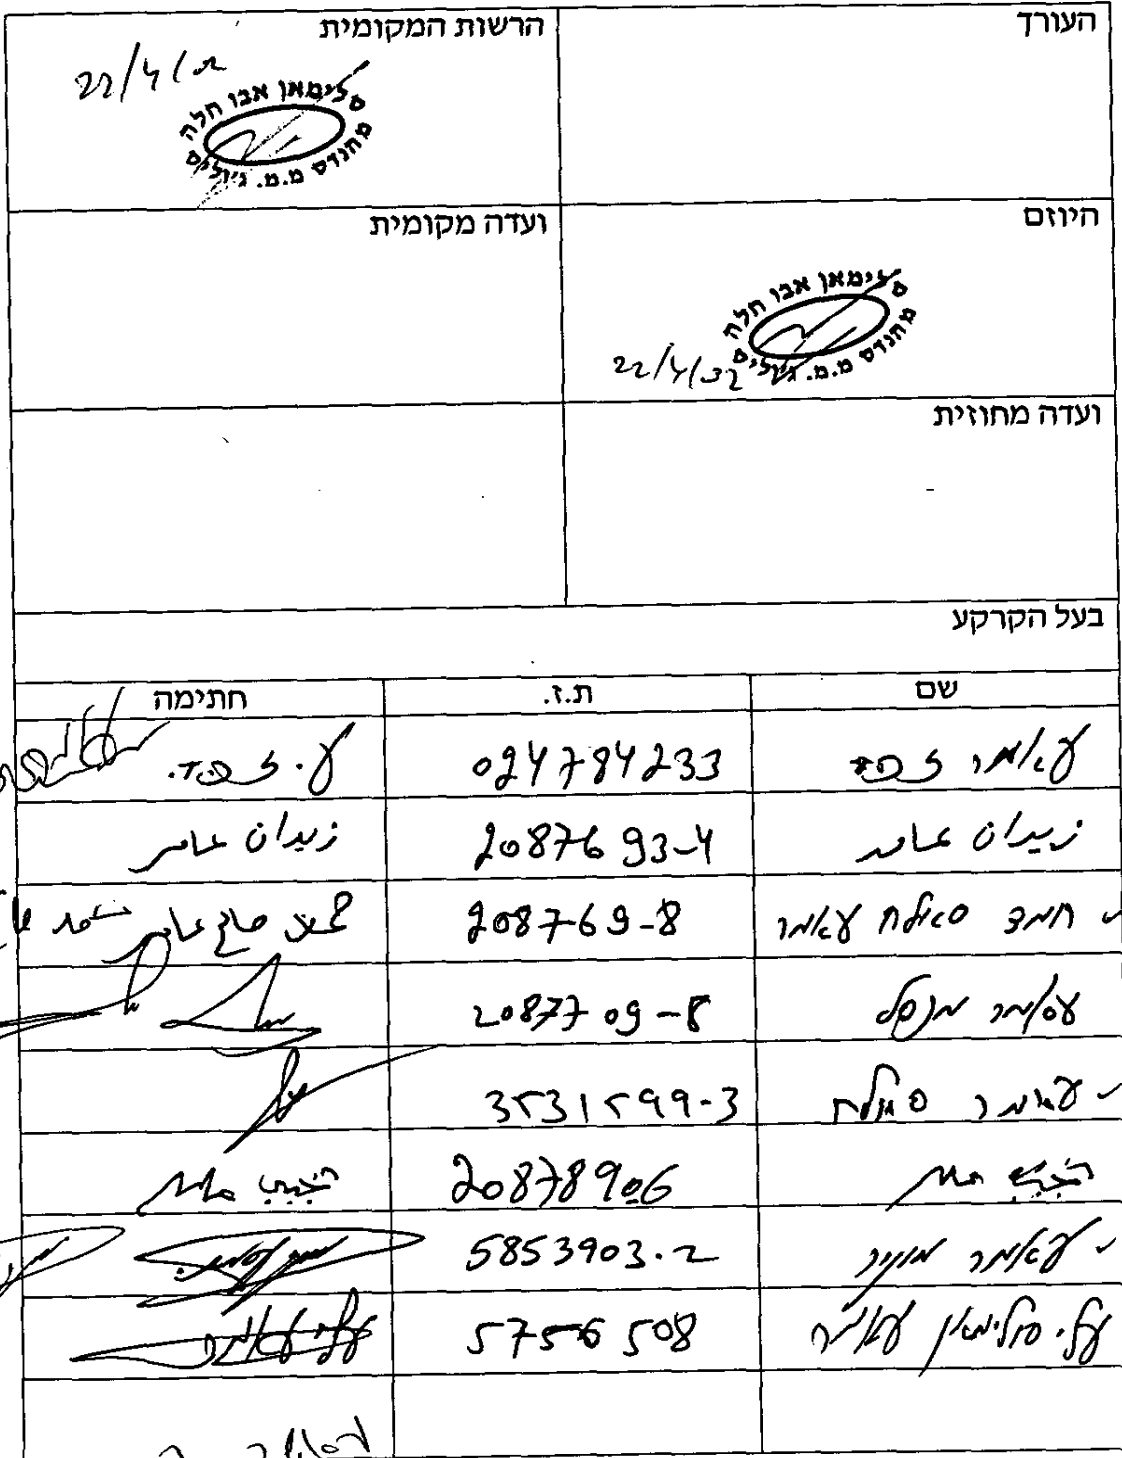 העורך
הרשות המקומית
22/4/02
סלימאן אבו חלה
מהנדס מ.מ. ג'וליס
היוזם
ועדה מקומית
סלימאן אבו חלה
מהנדס מ.מ. ג'וליס
22/4/02
ועדה מחוזית
בעל הקרקע
שם ת.ז. חתימה
עאמר 024784233 ע.
زيدان عامر 2087693-4 زيدان عامر
חמד סאלח עאמר 208769-8
עאמר 2087709-8
עאמר סאלח 3531599-3
نجيب عامر 20878906 نجيب عامر
עאמר מוניר 5853903-2
עלי סולימאן עאמר 5756508 עלי עאמר